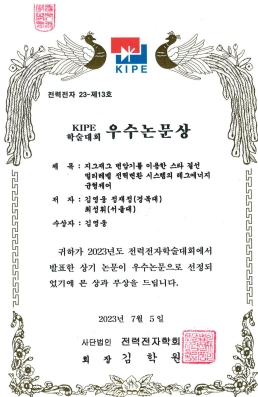 KIPE
전력전자 23-제13호
KIPE
학술대회 우수논문상
제 목 : 지그재그 변압기를 이용한 스타 결선
멀티레벨 전력변환 시스템의 레그에너지
균형제어
저 자 : 김영웅 정재정(경북대)
최성휘(서울대)
수상자 : 김영웅
귀하가 2023년도 전력전자학술대회에서
발표한 상기 논문이 우수논문으로 선정되
었기에 본 상과 부상을 드립니다.
2023년 7월 5일
사단법인 전력전자학회
회 장 김 학 원